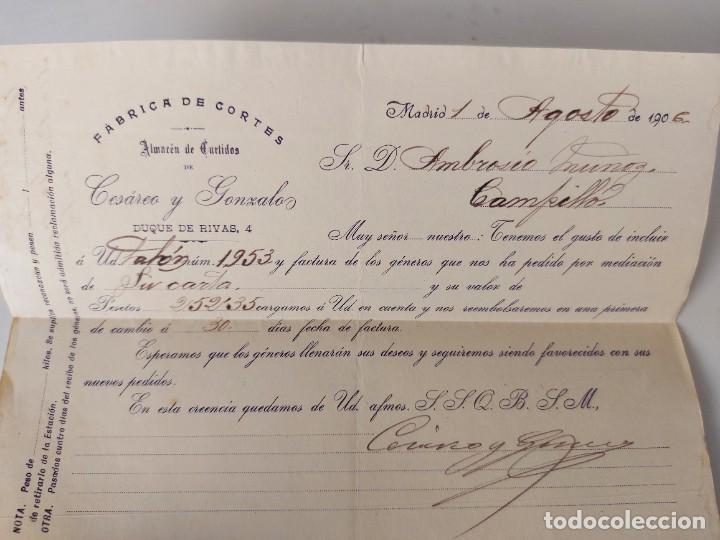 FÁBRICA DE CORTES
Almacén de Curtidos
DE
Cesáreo y Gonzalo
DUQUE DE RIVAS, 4
Madrid 1 de Agosto de 1906
Sr. D. Ambrosio Muñoz
Campillo
Muy señor nuestro: Tenemos el gusto de incluir
á Ud. Talón núm. 1953 y factura de los géneros que nos ha pedido por mediación
de Su carta y su valor de
Pesetas 252'35 cargamos á Ud en cuenta y nos reembolsaremos en una primera
de cambio á 30 días fecha de factura.
Esperamos que los géneros llenarán sus deseos y seguiremos siendo favorecidos con sus
nuevos pedidos.
En esta creencia quedamos de Ud. afmos. S. S. Q. B. S. M.,
NOTA. Peso de kilos. Se suplica reconozcan y pesen antes
de retirarlo de la Estación.
OTRA. Pasados cuatro días del recibo de los géneros no será admitida reclamación alguna.
todocoleccion.net